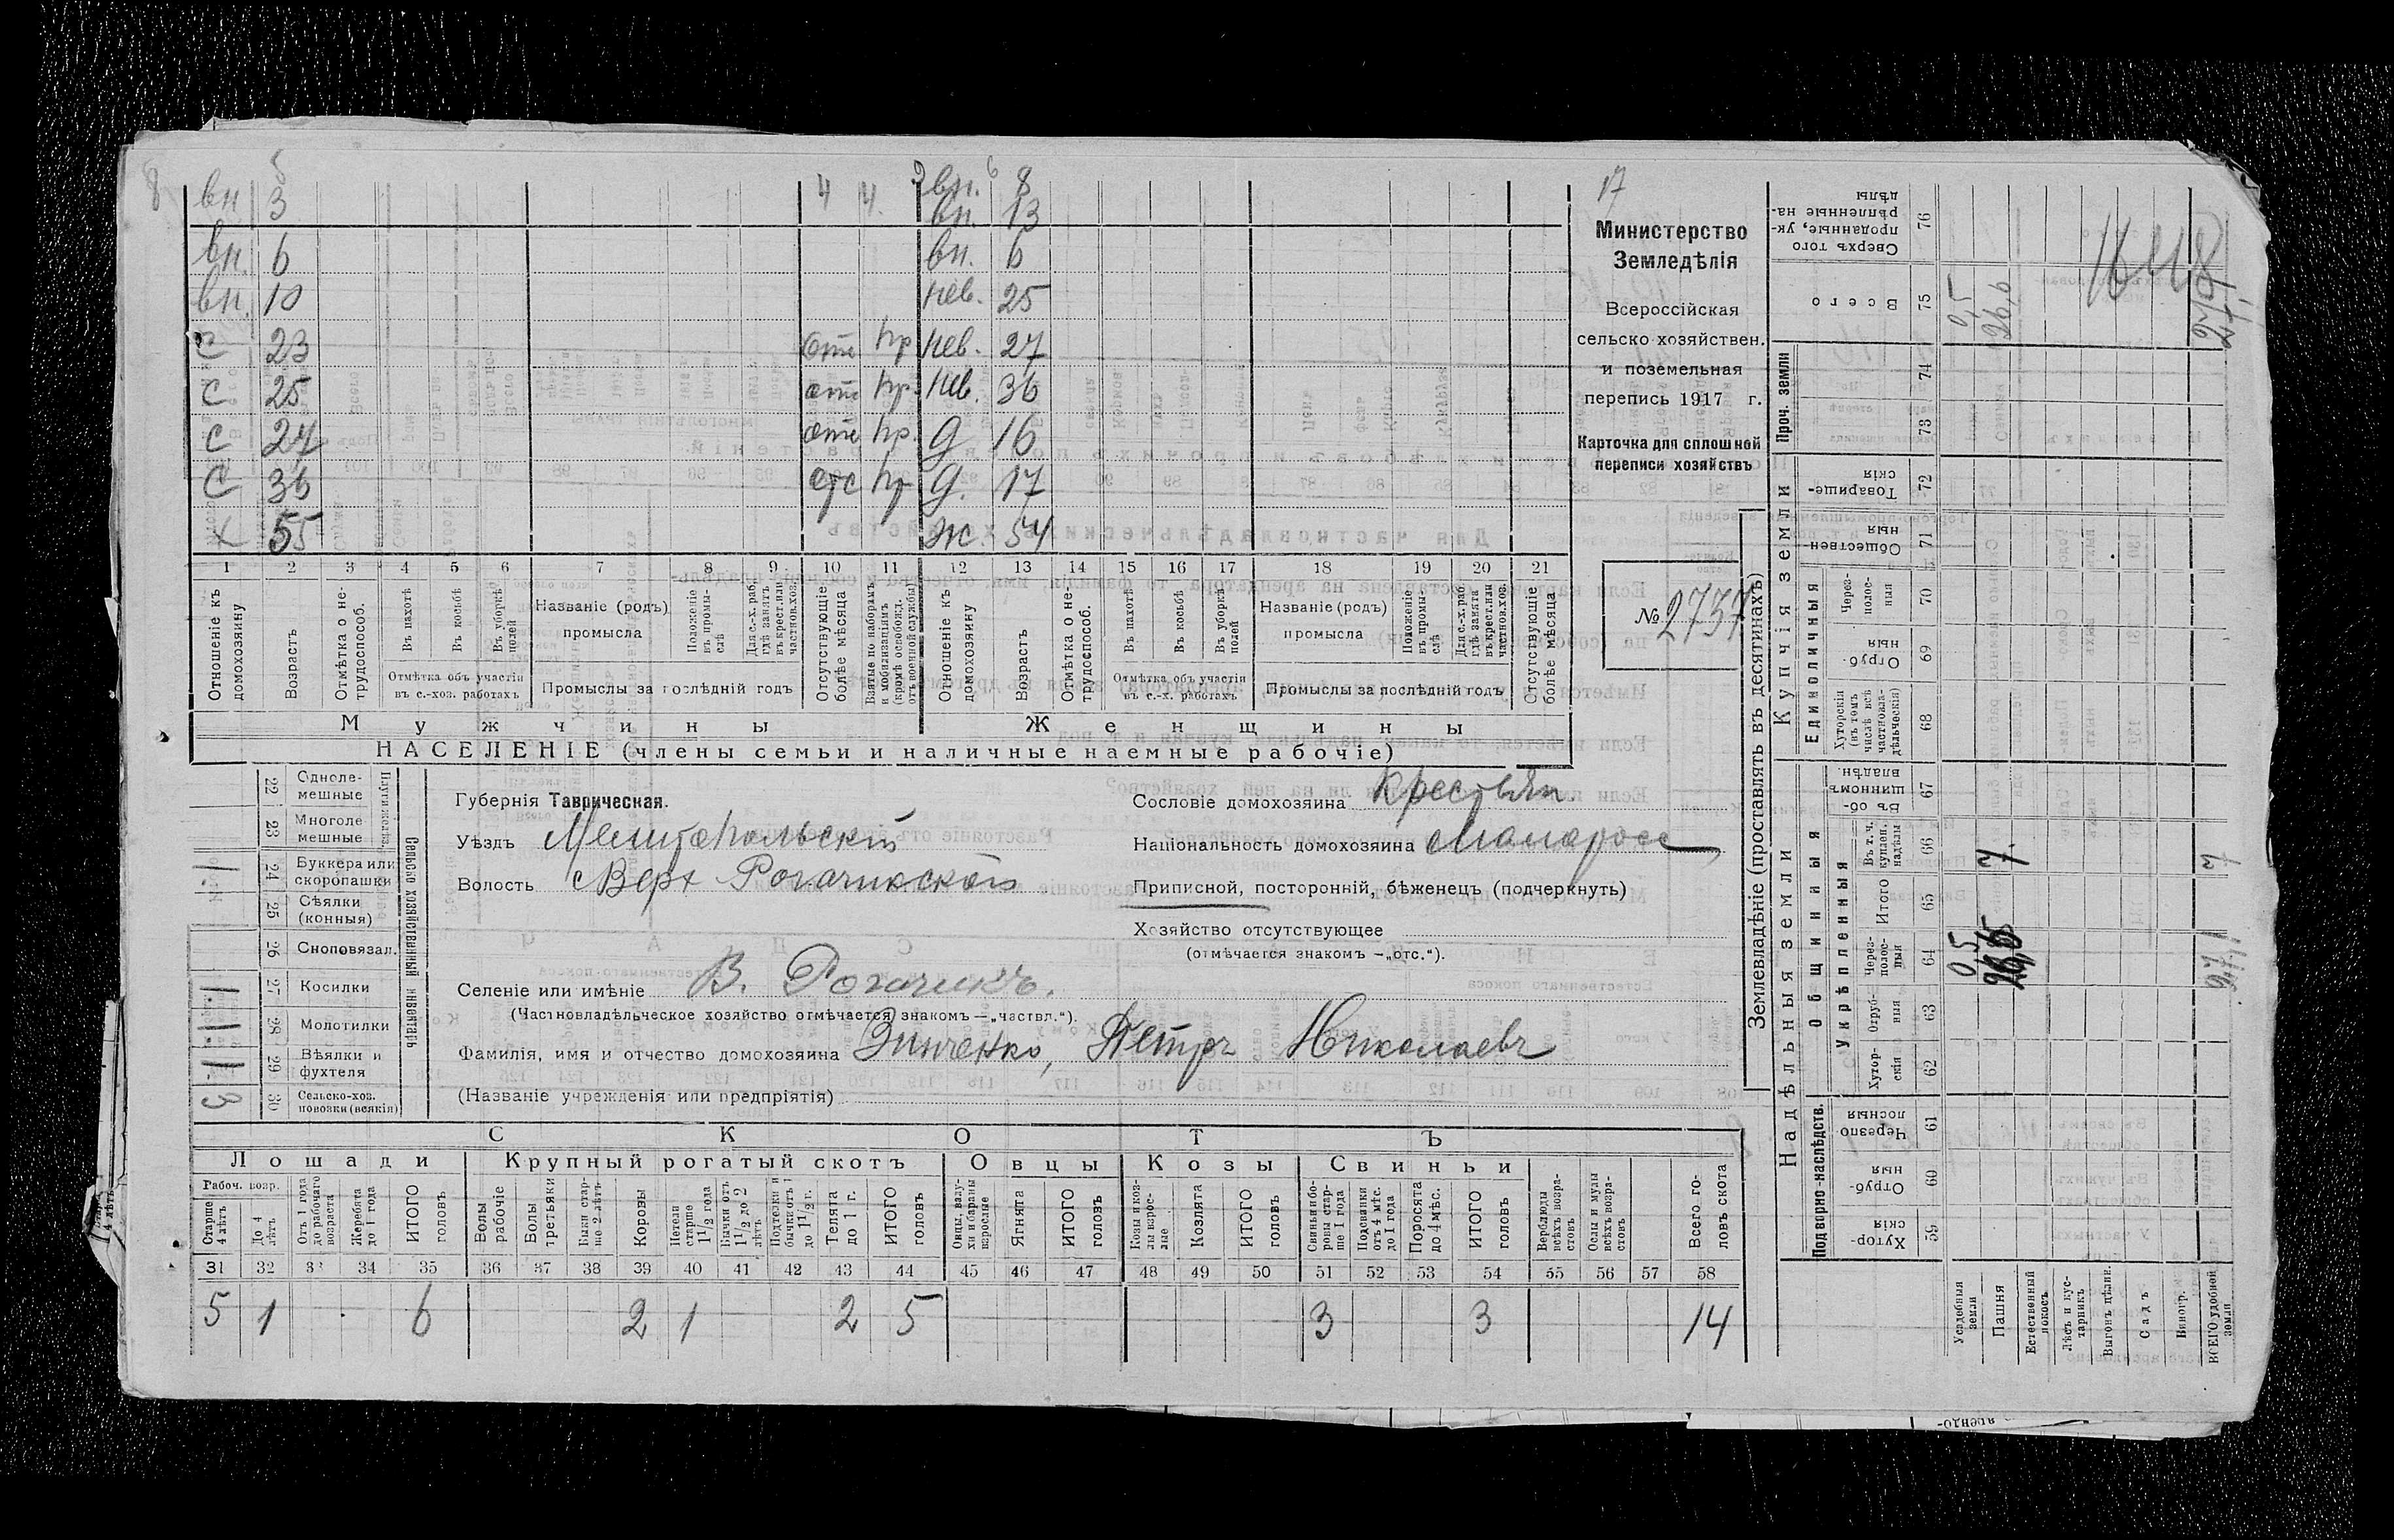 8 5 4 4. 9 6 17
вн 3 вн. 8
вн. 13
вн. 6 вн. 6
вн. 10 нев. 25
С 23 отс пр нев. 27
С 25 отс пр. нев. 36
С 27 отс пр. д 16
С 36 отс пр д. 17
х 55 ж. 54
1 2 3 4 5 6 7 8 9 10 11 12 13 14 15 16 17 18 19 20 21
Отношеніе къ домохозяину
Возрастъ
Отмѣтка о нетрудоспособ.
Въ пахотѣ
Въ косьбѣ
Въ уборкѣ полей
Отмѣтка объ участіи въ с.-хоз. работахъ
Названіе (родъ) промысла
Положеніе въ промыслѣ
Для с.-х. раб. гдѣ занятъ въ крест. или частнов. хоз.
Промыслы за послѣдній годъ
Отсутствующіе болѣе мѣсяца
Взятые по наборамъ и мобилизаціямъ (кромѣ освобожд. отъ военной службы)
Отношеніе къ домохозяину
Возрастъ
Отмѣтка о нетрудоспособ.
Въ пахотѣ
Въ косьбѣ
Въ уборкѣ полей
Отмѣтка объ участіи въ с.-х. работахъ
Названіе (родъ) промысла
Положеніе въ промыслѣ
Для с.-х. раб. гдѣ занята въ крест. или частнов. хоз.
Промыслы за послѣдній годъ
Отсутствующіе болѣе мѣсяца
Мужчины Женщины
НАСЕЛЕНІЕ (члены семьи и наличные наемные рабочіе)
Министерство
Земледѣлія
Всероссійская
сельско хозяйствен.
и поземельная
перепись 1917 г.
Карточка для сплошной
переписи хозяйствъ
№ 2737
22 Однолемешные
23 Многолемешные
1 24 Буккера или скоропашки
25 Сѣялки (конныя)
26 Сноповязал.
1 27 Косилки
1 28 Молотилки
1 29 Вѣялки и фухтеля
3 30 Сельско-хоз. повозки (всякія)
Сельско хозяйственный инвентарь
Губернія Таврическая.
Уѣздъ Мелитопольскій
Волость Верх Рогачикской
Сословіе домохозяина Крестьян.
Національность домохозяина Малоросс
Приписной, посторонній, бѣженецъ (подчеркнуть)
Хозяйство отсутствующее
(отмѣчается знакомъ —„отс.“).
Селеніе или имѣніе В. Рогачикъ.
(Частновладѣльческое хозяйство отмѣчается знакомъ —„частвл.“).
Фамилія, имя и отчество домохозяина Зинченко, Петръ Николаевъ
(Названіе учрежденія или предпріятія)
СКОТЪ
Лошади Крупный рогатый скотъ Овцы Козы Свиньи
Рабоч. возр.
Старше 4 лѣтъ
До 4 лѣтъ
Отъ 1 года до рабочаго возраста
Жеребята до 1 года
ИТОГО головъ
Волы рабочіе
Волы третьяки
Быки старше 2 лѣтъ
Коровы
Нетели старше 1 1/2 года
Бычки отъ 1 1/2 до 2 лѣтъ
Подтелки и бычки отъ 1 до 1 1/2 г.
Телята до 1 г.
ИТОГО головъ
Овцы, валухи и бараны взрослые
Ягнята
ИТОГО головъ
Козы и козлы взрослые
Козлята
ИТОГО головъ
Свиньи и боровы старше 1 года
Подсвинки отъ 4 мѣс. до 1 года
Поросята до 4 мѣс.
ИТОГО головъ
Верблюды всѣхъ возрастовъ
Ослы и мулы всѣхъ возрастовъ
Всего головъ скота
31 32 33 34 35 36 37 38 39 40 41 42 43 44 45 46 47 48 49 50 51 52 53 54 55 56 57 58
5 1 6 2 1 2 5 3 3 14
Землевладѣніе (проставлять въ десятинахъ)
Купчія земли
Надѣльныя земли
Проч. земли
Единоличныя
Общинныя
Укрѣпленныя
Подворно-наслѣдств.
Сверхъ того проданные, укрѣпленные надѣлы 76
Всего 75 0,5 26,6
74
73
Товарищескія 72
Общественныя 71
Черезполосныя 70
Отрубныя 69
Хуторскія (въ томъ числѣ всѣ частновладѣльческія) 68
Въ общинномъ владѣн. 67
Въ т. ч. куплен. надѣлы 66 7. 7
Итого 65
Черезполосныя 64 0,5 27,1
Отрубныя 63
Хуторскія 62
Черезполосныя 61
Отрубныя 60
Хуторскія 59
Усадебныя земли
Пашня
Естественный покосъ
Лѣсъ и кустарникъ
Выгонъ цѣлин.
Садъ
Виногр.
ВСЕГО удобной земли
27,1